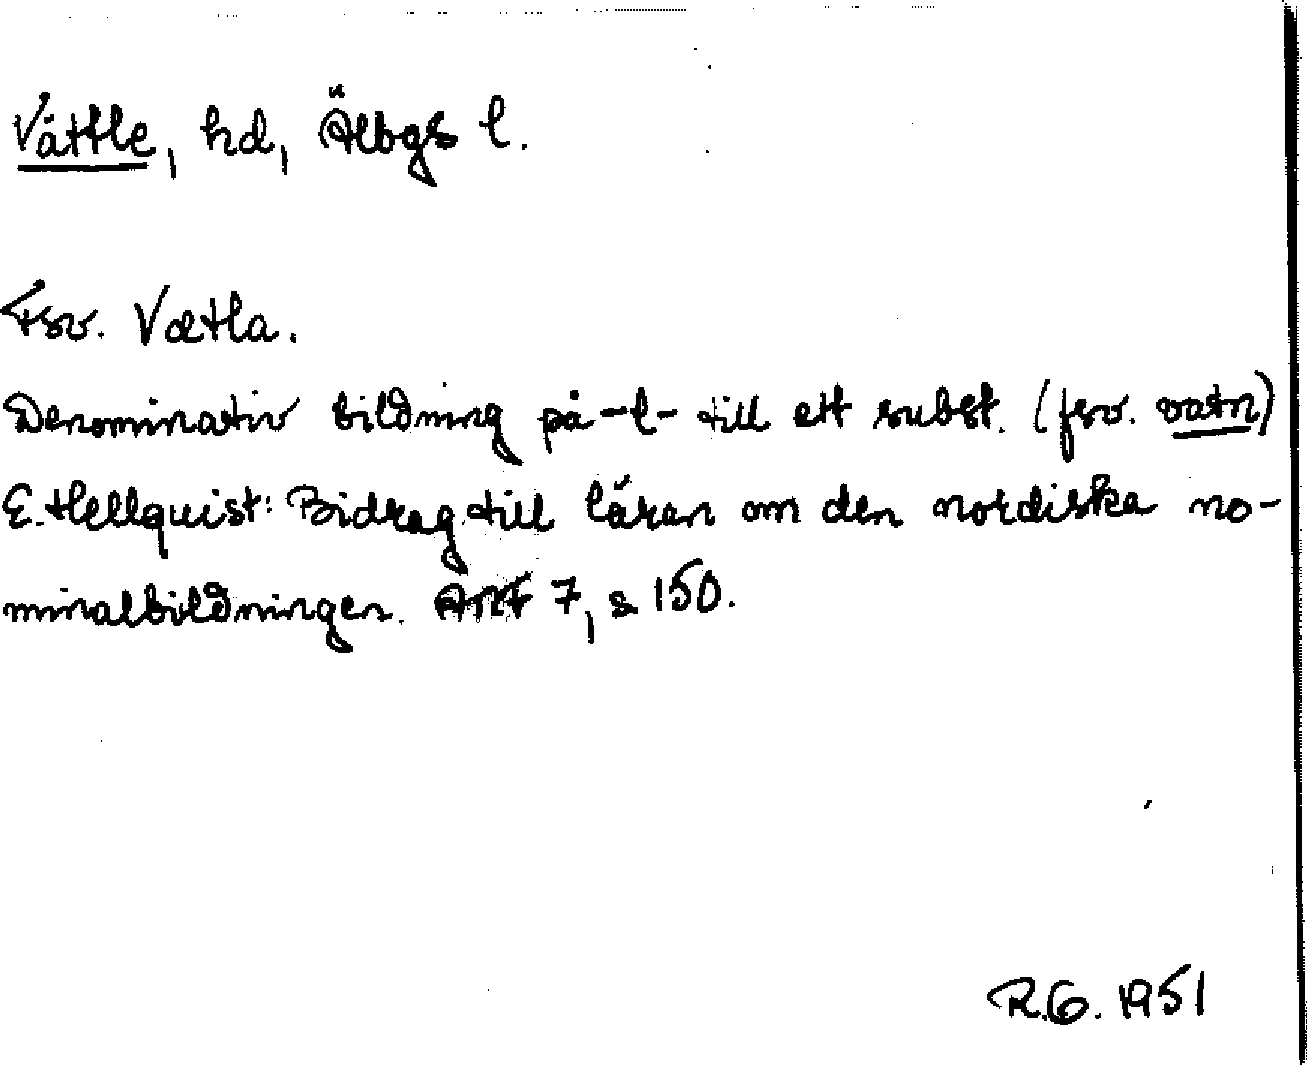 Vättle, hd, Älbgs l.
Fsv. Vætla.
Denominativ bildning på -l- till ett subst. (fsv. vatn)
E. Hellquist: Bidrag till läran om den nordiska no-
minalbildningen. ANF 7, s 150.
R.G. 1951